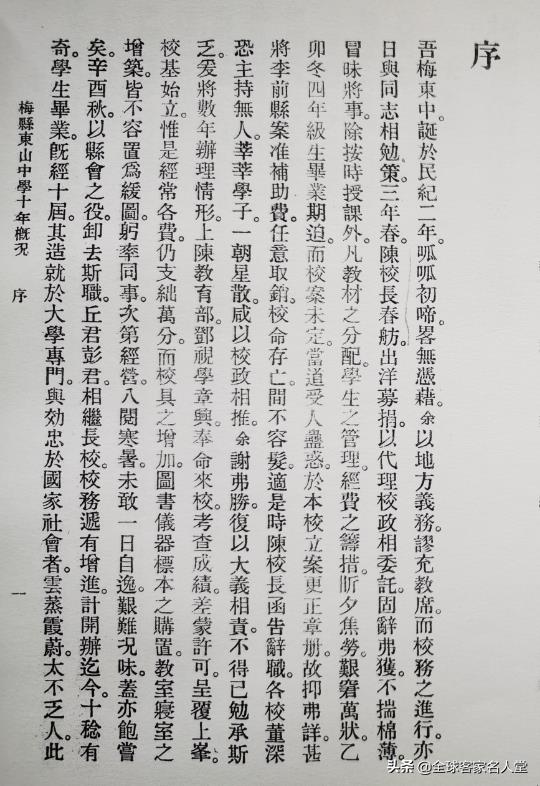 序
吾梅東中。誕於民紀二年。呱呱初啼。畧無憑藉。余以地方義務。謬充教席。而校務之進行。亦
日與同志相勉策。三年春。陳校長春舫。出洋募捐。以代理校政相委託。固辭弗獲。不揣棉薄。
冒昧將事。除按時授課外。凡教材之分配。學生之管理。經費之籌措。昕夕焦勞。艱窘萬狀。乙
卯冬四年級生畢業期迫。而校案未定。當道受人蠱惑。於本校立案更正章册。故抑弗詳。甚
將李前縣案准補助費。任意取銷。校命存亡。間不容髮。適是時陳校長函吿辭職。各校董深
恐主持無人。莘莘學子。一朝星散。咸以校政相推。余謝弗勝。復以大義相責。不得已勉承斯
乏。爰將數年辦理情形。上陳教育部。鄧視學章興。奉命來校。考查成績。差蒙許可。呈覆上峯。
校基始立。惟是經常各費。仍支絀萬分。而校具之增加。圖書儀器標本之購置。教室寢室之
增築。皆不容置爲緩圖。躬率同事。次第經營。八閱寒暑。未敢一日自逸。艱難況味。蓋亦飽嘗
矣。辛酉秋。以縣會之役。卸去斯職。丘君彭君。相繼長校。校務遞有增進。計開辦迄今。十稔有
奇。學生畢業。旣經十屆。其造就於大學專門。與効忠於國家社會者。雲蒸霞蔚。太不乏人。此
梅縣東山中學十年概況 序 一
头条 @全球客家名人堂